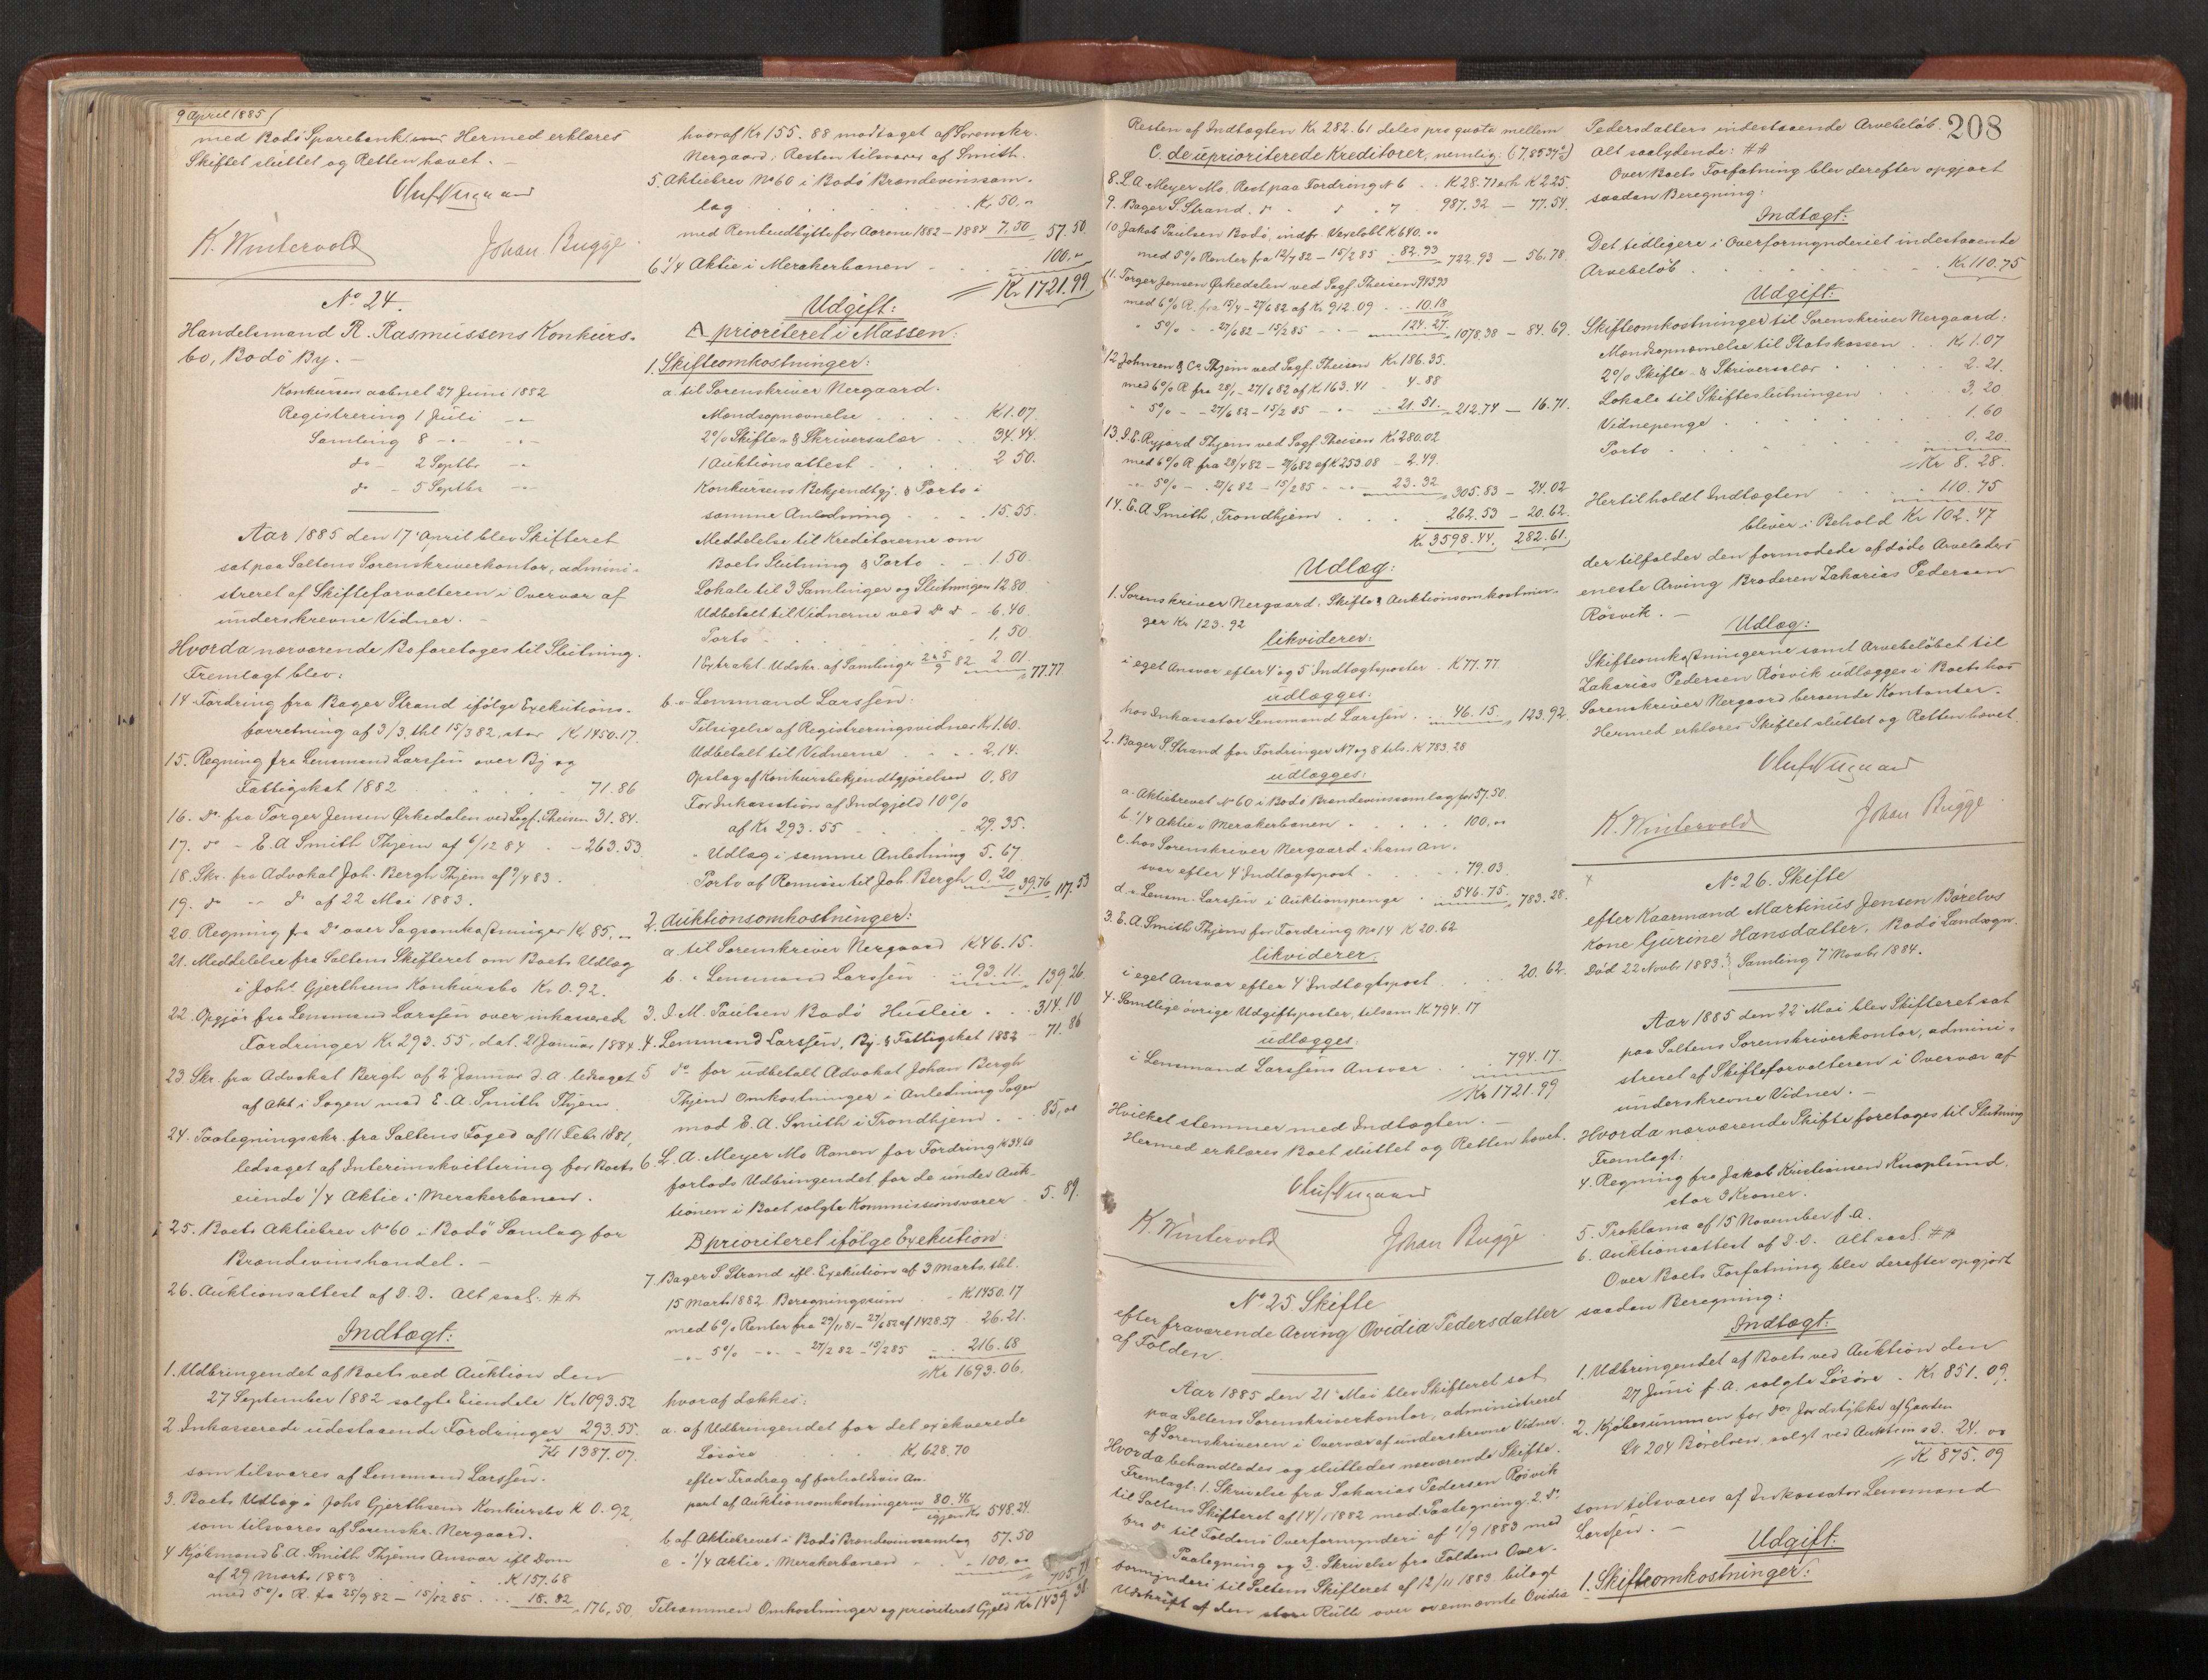 9 April 1885
med Bodö Sparebank. Hermed erklæres
Skiftet sluttet og Retten hævet. -
Oluf Nergaard
K. Wintervold Johan Bugge.
No 24.
Handelsmand R. Rasmussens Konkurs-
bo, Bodö By. -
Konkursen aabnet 27 Juni 1882
Registrering 1 Juli -"-
Samling 8 -"- -"-
do - 2 Septbr -"-
do - 5 Septbr -"-
Aar 1885 den 17 April blev Skifteret
sat paa Saltens Sorenskriverkontor, admini-
streret af Skifteforvalteren i Overvær af
underskrevne Vidner. -
Hvorda nærværende Bo foretoges til Slutning.
Fremlagt blev:
14. Fordring fra Bager Strand ifölge Exekutions-
forretning af 3/3, thl 15/3 82, stor Kr 1450.17.
15. Regning fra Lensmand Larssen over By og
Fattigskat 1882 71.86
16. do fra Torger Jensen Örkedalen ved Sagf. Theisen 31.84.
17. do - E. A Smith Thjem af 6/12 84 - 263.53
18. Skr. fra Advokat Joh. Bergh Thjem af 9/4 83.
19. do -"- do af 22 Mai 1883.
20. Regning fra do over Sagsomkostninger Kr 85, -
21. Meddelelse fra Saltens Skifteret om Boets Udlæg
i Johs Gjerthsens Konkursbo Kr 0.92.
22. Opgjör fra Lensmand Larssen over inkasserede
Fordringer Kr 293.55, dat. 21 Januar 1884.
23. Skr. fra Advokat Bergh af 2 Januar d.A. ledsaget
af Akt i Sagen mod E. A. Smith Thjem
24. Paategningsskr. fra Saltens Foged af 11 Febr 1881,
ledsaget af Interimskvittering for Boets
eiende 1/4 Aktie i Merakerbanen.
25. Boets Aktiebrev No 60 i Bodö Samlag for
Brændevinshandel. -
26. Auktionsattest af D.D. Alt saal. ##
Indtægt:
1. Udbringendet af Boets ved Auktion den
27 September 1882 solgte Eiendele Kr. 1093.52
2. Inkasserede udestaaende Fordringer 293.55.
Kr 1387.07.
som tilsvares af Lensmand Larssen.
3. Boets Udlæg i Johs Gjerthsens Konkursbo K 0.92,
som tilsvares af Sorenskr. Nergaard.
4 Kjöbmand E. A. Smith Thjems Ansvar ifl Dom
af 29 Marts 1883 K 157.68
med 5% R. fra 25/9 82 - 15/2 85 18.82 176,50.
hvoraf Kr 155.88 modtaget af Sorenskr.
Nergaard; Resten tilsvares af Smith.
5. Aktiebrev No 60 i Bodö Brændevinssam-
lag Kr. 50."
med Renteudbytte for Aarene 1882 - 1884 7.50 57.50.
6 1/4 Aktie i Merakerbanen 100,"
Kr 1721.99
Udgift:
A prioriteret i Massen:
1. Skifteomkostninger:
a. til Sorenskriver Nergaard.
Mandsopnævnelse K 1.07.
2% Skifte- & Skriversalær 34.44.
1 Auktionsattest 2 50.
Konkursens Bekjendtgj. & Porto i
samme Anledning 15.55.
Meddelelse til Kreditorerne om
Boets Slutning & Porto 1.50.
Lokale til 3 Samlinger og Slutningen 12.80.
Udbetalt til Vidnerne ved do do - 6.40.
Porto 1, 50.
1 Extrakt. Udskr. af Samlinger 2 & 5/9 82 2 01 77.77
b. - Lensmand Larssen:
Tilsigelse af Registreringsvidner Kr 1.60.
Udbetalt til Vidnerne 2.14.
Opslag af Konkursbekjendtgjörelsen 0.80
For Inkassation af Indgjeld 10%
af Kr 293.55 29.35.
" Udlæg i samme Anledning 5.67.
Porto af Remisse til Joh. Bergh 0.20 39.76 117.53
2. Auktionsomkostninger:
a til Sorenskriver Nergaard K 46.15.
b. " Lensmand Larssen 93.11. 139,26.
3. J. M. Paulsen Bodö Husleie 314.10
4. Lensmand Larssen, By- & Fattigskat 1882 71.86
5 do for udbetalt Advokat Johan Bergh
Thjem Omkostninger i Anledning Sagen
mod E. A. Smith i Trondhjem. 85,00
6. L. A. Meyer Mo Ranen for Fordring K 34.60
forlods Udbringendet for de under Auk-
tionen i Boet solgte Kommissionsvarer 5.89.
B prioriteret ifölge Exekution:
7. Bager S. Strand ifl. Exekution af 3 Marts, thl.
15 Marts 1882 Beregningssum K 1450.17
med 6% Renter fra 29/11 81 - 27/6 82 af 1428.57 26.21.
-"- 5% -"- - 27/2 82 - 15/2 85 216.68
Kr 1693.06.
hvoraf dækkes:
a. af Udbringendet for det exekverede
Lösöre K 628.70
efter Fradrag af forholdsvis An-
part af Auktionsomkostningerne 80.46
igjen K 548.24.
b. af Aktiebrevet i Bodö Brændevinssamlag 57.50
c - 1/4 Aktie i Merakerbanen 100,"
705.74
Tilsammen Omkostninger og prioriteret Gjeld Kr 1439.38
208
Resten af Indtægten Kr 282.61 deles pro quota mellem
C. de uprioriterede Kreditorer, nemlig: (7,8537%)
8. L. A. Meyer Mo. Rest paa Fordring No 6 K 28.71 erh. K 2.25.
9. Bager S. Strand. do - do - 7 987.32 - 77.54.
10 Jakob Paulsen Bodö, indfr. Vexelobl K 640."
med 5% Renter fra 12/7 82 - 15/2 85 82.93 722.93 - 56.78.
11. Torger Jensen Örkedalen ved Sagf. Theisen 943.93
med 6% R. fra 15/4 - 27/6 82 af Kr 912.09 10.18
" 5% - 27/6 82 - 15/2 85 124.27. 1078.38 - 84.69.
12 Johnsen & Co Thjem ved Sagf. Theisen Kr 186.35.
med 6% R fra 28/1 - 27/6 82 af K 163.41 4.88
" 5% - - 27/6 82 - 15/2 85 21.51. 212.74 - 16.71.
13. J. E. Ryjord Thjem ved Sagf. Theisen K 280.02
med 6% R fra 28/4 82 - 27/6 82 af K 253.08 - 2.49.
-"- 5% - 27/6 82 - 15/2 85 23.32 305.83 - 24.02
14. E. A Smith, Trondhjem 262.53 - 20.62.
K 3598.44. 282.61.
Udlæg:
1. Sorenskriver Nergaard, Skifte & Auktionsomkostnin-
ger Kr 123.92
likviderer:
i eget Ansvar efter 4 og 5 Indtægtsposter K 77.77
udlægges:
hos Inkassator Lensmand Larssen 46.15 123.92.
2. Bager S. Strand for Fordringer N 7 og 8 tils. K 783.28
udlægges:
a. Aktiebrevet No 60 i Bodö Brændevinssamlag for 57.50.
b. 1/4 Aktie i Merakerbanen 100,"
c. hos Sorenskriver Nergaard i hans An-
svar efter 4 Indtægtspost 79.03
d. - Lensm. Larssen i Auktionspenge 546.75. 783.28.
3. E. A. Smith Thjem for Fordring No 14 K 20.62
likviderer,
i eget Ansvar efter 4 Indtægtspost 20.62.
4. Samtlige övrige Udgiftsposter, tilsam K 794.17
udlægges:
i Lensmand Larssens Ansvar 794.17.
Kr 1721.99
Hvilket stemmer med Indtægten. -
Hermed erklæres Boet sluttet og Retten hævet.
Oluf Nergaard
K. Wintervold Johan Bugge.
No 25 Skifte
efter fraværende Arving Ovidia Pedersdatter
af Folden.
Aar 1885 den 21 Mai blev Skifteret sat
paa Saltens Sorenskriverkontor, administreret
af Sorenskriveren i Overvær af underskrevne Vidner.
Hvorda behandledes og sluttedes nærværende Skifte.
Fremlagt: 1. Skrivelse fra Zakarias Pedersen Rösvik
til Saltens Skifteret af 14/1 1882 med Paategning. 2. do
fra do til Foldens Overformynderi af 1/9 1883 med
Paategning og 3. Skrivelse fra Foldens Over-
formynderi til Saltens Skifteret af 12/11 1883 bilagt
Udskrift af den store Rulle over ovennævnte Ovidia
Pedersdatters indestaaende Arvebelöb.
Alt saalydende: ##
Over Boets Forfatning blev derefter opgjort
saadan Beregning:
Indtægt:
Det tidligere i Overformynderiet indestaaende
Arvebelöb Kr. 110.75
Udgift:
Skifteomkostninger til Sorenskriver Nergaard:
Mandsopnævnelse til Statskassen Kr 1.07
2% Skifte- & Skriversalær 2.21.
Lokale til Skifteslutningen 3,20
Vidnepenge 1,60
Porto 0,20.
Kr 8.28.
Hertil holdt Indtægten 110.75
bliver i Behold Kr 102.47
der tilfalder den formodede afdöde Arveladers
eneste Arving Broderen Zakarias Pedersen
Rösvik. -
Udlæg:
Skifteomkostningerne samt Arvebelöbet til
Zakarias Pedersen Rösvik udlægges i Boets hos
Sorenskriver Nergaard beroende Kontanter.
Hermed erklæres Skiftet sluttet og Retten hævet.
Oluf Nergaard
K. Wintervold Johan Bugge
No 26. Skifte
efter Kaarmand Martinus Jensen Börelvs
Kone Gurine Hansdatter, Bodö Landsogn.
Död 22 Novbr 1883. Samling 7 Novbr 1884.
Aar 1885 den 22 Mai blev Skifteret sat
paa Saltens Sorenskriverkontor, admini-
streret af Skifteforvalteren i Overvær af
underskrevne Vidner. -
Hvorda nærværende Skifte foretoges til Slutning
Fremlagt:
4. Regning fra Jakob Kristiansen Knaplund,
stor 3 Kroner.
5. Proklama af 15 November f. A.
6. Auktionsattest af D.D. Alt saal. ##
Over Boets Forfatning blev derefter opgjört
saadan Beregning:
Indtægt:
1. Udbringendet af Boets ved Auktion den
27 Juni f.A. solgte Lösöre Kr 851.09.
2. Kjöbesummen for do Jordstykke af Gaarden
LN 204 Börelven, solgt ved Auktion s.d. 24."
K 875.09
som tilsvares af Inkassator Lensmand
Larssen. -
Udgift:
1. Skifteomkostninger: